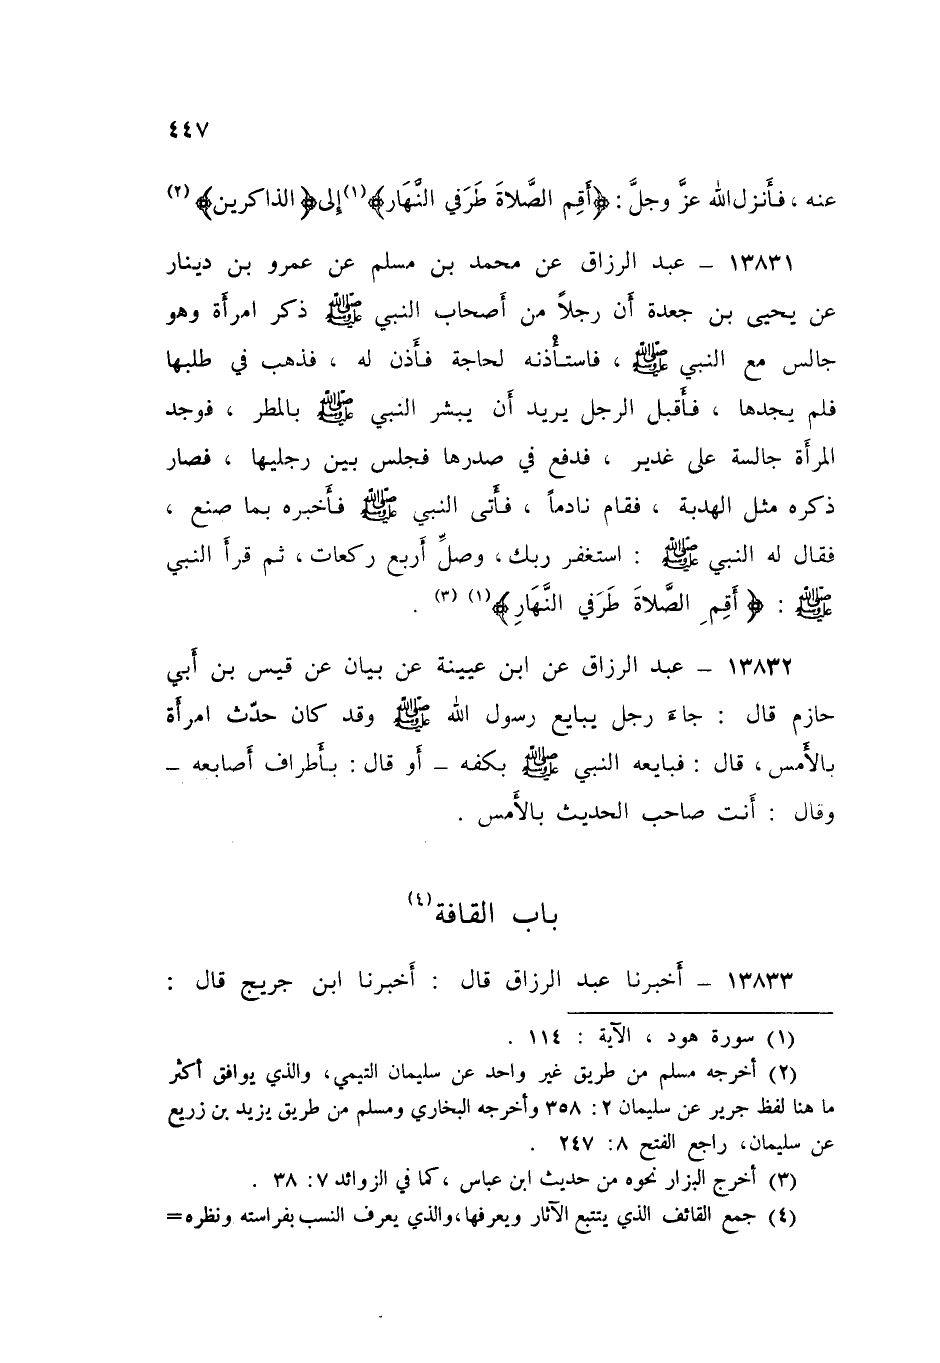 ٤٤٧
عنه ، فأنزل الله عزَّ وجلَّ : ﴿أَقِم الصَّلاةَ طَرَفي النَّهَار﴾(١) إلى ﴿الذاكرين﴾ (٢)
١٣٨٣١ – عبد الرزاق عن محمد بن مسلم عن عمرو بن دينار
عن يحيى بن جعدة أن رجلاً من أصحاب النبي ﷺ ذكر امرأة وهو
جالس مع النبي ﷺ ، فاستأْذنه لحاجة فأَذن له ، فذهب في طلبها
فلم يجدها ، فأَقبل الرجل يريد أَن يبشر النبي ﷺ بالمطر ، فوجد
المرأَة جالسة على غدير ، فدفع في صدرها فجلس بين رجليها ، فصار
ذكره مثل الهدبة ، فقام نادماً ، فأَتى النبي ﷺ فأَخبره بما صنع ،
فقال له النبي ﷺ : استغفر ربك ، وصلِّ أَربع ركعات ، ثم قرأَ النبي
ﷺ : ﴿ أَقِمِ الصَّلاةَ طَرَفي النَّهَارِ﴾(١) (٣) .
١٣٨٣٢ – عبد الرزاق عن ابن عيينة عن بيان عن قيس بن أَبي
حازم قال : جاءَ رجل يبايع رسول الله ﷺ وقد كان حدّث امرأَة
بالأَمس ، قال : فبايعه النبي ﷺ بكفه – أَو قال : بأَطراف أَصابعه –
وقال : أَنت صاحب الحديث بالأَمس .
باب القافة(٤)
١٣٨٣٣ – أَخبرنا عبد الرزاق قال : أَخبرنا ابن جريج قال :
(١) سورة هود ، الآية : ١١٤ .
(٢) أخرجه مسلم من طريق غير واحد عن سليمان التيمي، والذي يوافق أكثر
ما هنا لفظ جرير عن سليمان ٢ : ٣٥٨ وأخرجه البخاري ومسلم من طريق يزيد بن زريع
عن سليمان، راجع الفتح ٨: ٢٤٧ .
(٣) أخرج البزار نحوه من حديث ابن عباس ، كما في الزوائد ٧: ٣٨ .
(٤) جمع القائف الذي يتتبع الآثار ويعرفها، والذي يعرف النسب بفراسته ونظره=